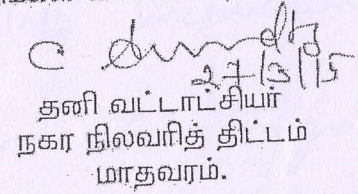 27/3/15
தனி வட்டாட்சியர்
நகர நிலவரித் திட்டம்
மாதவரம்.